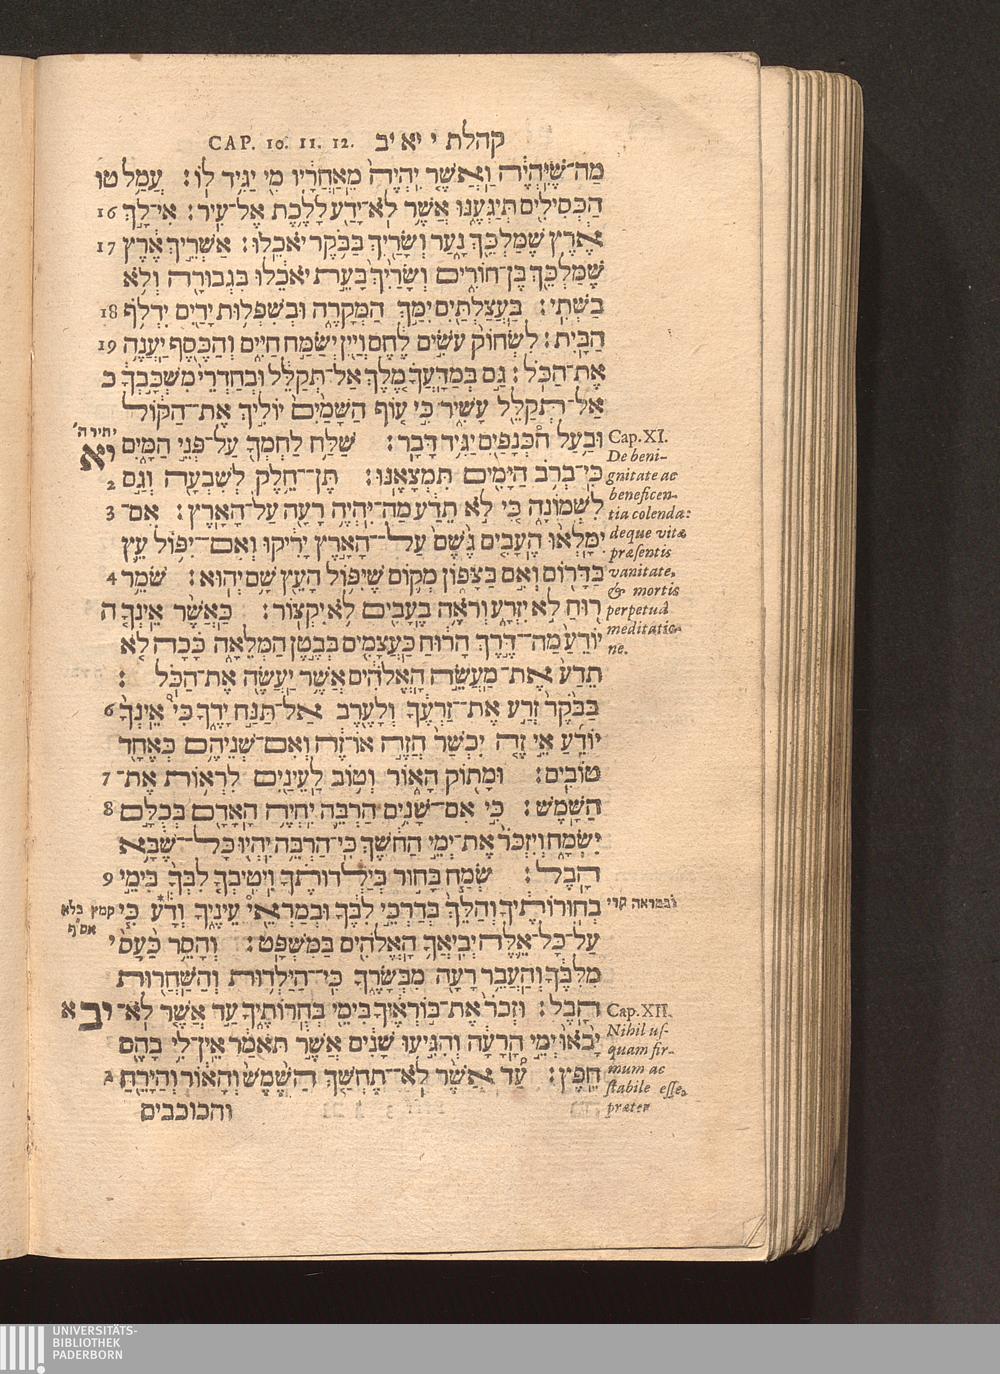 CAP. 10. 11. 12. קהלת י יא יב
מַה־שֶּׁיִּהְיֶה וַאֲשֶׁר יִהְיֶה מֵאַחֲרָיו מִי יַגִּיד לוֹ׃ עֲמַל טו
הַכְּסִילִים תְּיַגְּעֶנּוּ אֲשֶׁר לֹא־יָדַע לָלֶכֶת אֶל־עִיר׃ אִי־לָךְ 16
אֶרֶץ שֶׁמַּלְכֵּךְ נָעַר וְשָׂרַיִךְ בַּבֹּקֶר יֹאכֵלוּ׃ אַשְׁרֵיךְ אֶרֶץ 17
שֶׁמַּלְכֵּךְ בֶּן־חוֹרִים וְשָׂרַיִךְ בָּעֵת יֹאכֵלוּ בִּגְבוּרָה וְלֹא
בַשְּׁתִי׃ בַּעֲצַלְתַּיִם יִמַּךְ הַמְּקָרֶה וּבְשִׁפְלוּת יָדַיִם יִדְלֹף 18
הַבָּיִת׃ לִשְׂחוֹק עֹשִׂים לֶחֶם וְיַיִן יְשַׂמַּח חַיִּים וְהַכֶּסֶף יַעֲנֶה 19
אֶת־הַכֹּל׃ גַּם בְּמַדָּעֲךָ מֶלֶךְ אַל־תְּקַלֵּל וּבְחַדְרֵי מִשְׁכָּבְךָ כ
אַל־תְּקַלֵּל עָשִׁיר כִּי עוֹף הַשָּׁמַיִם יוֹלִיךְ אֶת־הַקּוֹל
וּבַעַל הכְּנָפַיִם יַגֵּיד דָּבָר׃ שַׁלַּח לַחְמְךָ עַל־פְּנֵי הַמָּיִם יא
יתיר ה׳
כִּי־בְרֹב הַיָּמִים תִּמְצָאֶנּוּ׃ תֶּן־חֵלֶק לְשִׁבְעָה וְגַם 2
לִשְׁמוֹנָה כִּי לֹא תֵדַע מַה־יִּהְיֶה רָעָה עַל־הָאָרֶץ׃ אִם־ 3
יִמָּלְאוּ הֶעָבִים גֶּשֶׁם עַל־הָאָרֶץ יָרִיקוּ וְאִם־יִפּוֹל עֵץ
בַּדָּרוֹם וְאִם בַּצָּפוֹן מְקוֹם שֶׁיִּפּוֹל הָעֵץ שָׁם יְהוּא׃ שֹׁמֵר 4
רוּחַ לֹא יִזְרָע וְרֹאֶה בֶעָבִים לֹא יִקְצוֹר׃ כַּאֲשֶׁר אֵינְךָ ה
יוֹדֵעַ מַה־דֶּרֶךְ הָרוּחַ כַּעֲצָמִים בְּבֶטֶן הַמְּלֵאָה כָּכָה לֹא
תֵדַע אֶת־מַעֲשֵׂה הָאֱלֹהִים אֲשֶׁר יַעֲשֶׂה אֶת־הַכֹּל׃
בַּבֹּקֶר זְרַע אֶת־זַרְעֶךָ וְלָעֶרֶב אַל־תַּנַּח יָדֶךָ כִּי אֵינְךָ 6
יוֹדֵעַ אֵי זֶה יִכְשָׁר הֲזֶה אוֹ־זֶה וְאִם־שְׁנֵיהֶם כְּאֶחָד
טוֹבִים׃ וּמָתוֹק הָאוֹר וְטוֹב לַעֵינַיִם לִרְאוֹת אֶת־ 7
הַשָּׁמֶשׁ׃ כִּי אִם־שָׁנִים הַרְבֵּה יִחְיֶה הָאָדָם בְּכֻלָּם 8
יִשְׂמָח וְיִזְכֹּר אֶת־יְמֵי הַחֹשֶׁךְ כִּי־הַרְבֵּה יִהְיוּ כָּל־שֶׁבָּא
הָבֶל׃ שְׂמַח בָּחוּר בְּיַלְדוּתֶךָ וִיטִיבְךָ לִבְּךָ בִּימֵי 9
בְחוּרוֹתֶיךָ וְהַלֵּךְ בְּדַרְכֵי לִבְּךָ וּבְמַרְאֵי עֵינֶיךָ וְדָע כִּי
קמץ בלא אס״ף
ובמראה קרי
עַל־כָּל־אֵלֶּה יְבִיאֲךָ הָאֱלֹהִים בַּמִּשְׁפָּט׃ וְהָסֵר כַּעַס י
מִלִּבֶּךָ וְהַעֲבֵר רָעָה מִבְּשָׂרֶךָ כִּי־הַיַּלְדוּת וְהַשַּׁחֲרוּת
הָבֶל׃ וּזְכֹר אֶת־בּוֹרְאֶיךָ בִּימֵי בְּחֻרוֹתֶיךָ עַד אֲשֶׁר לֹא־ יב א
יָבֹאוּ יְמֵי הָרָעָה וְהִגִּיעוּ שָׁנִים אֲשֶׁר תֹּאמַר אֵין־לִי בָהֶם
חֵפֶץ׃ עַד אֲשֶׁר לֹא־תֶחְשַׁךְ הַשֶּׁמֶשׁ וְהָאוֹר וְהַיָּרֵחַ ב
והכוכבים
Cap. XI.
De beni-
gnitate ac
beneficen-
tia colenda:
deque vitæ
præsentis
vanitate,
& mortis
perpetuâ
meditatio-
ne.
Cap. XII.
Nihil us-
quam fir-
mum ac
stabile esse,
præter
UNIVERSITÄTS-
BIBLIOTHEK
PADERBORN